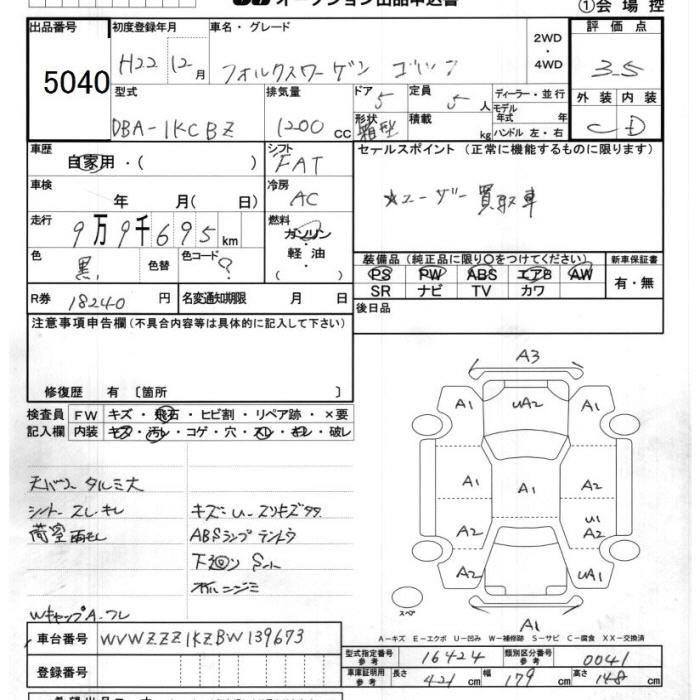 オークション出品申込書
①会場控
出品番号 初度登録年月 車名・グレード 2WD 評価点
5040 H22 12月 フォルクスワーゲン ゴルフ ・4WD 3.5
型式 排気量 ドア 5 定員 5人 ディーラー・並行 外装 内装
DBA-1KCBZ 1200cc 形状 箱型 積載 kg モデル年式 年 ハンドル 左・右 C D
車歴 シフト セールスポイント(正常に機能するものに限ります)
自家用・( ) FAT
車検 冷房 ★ユーザー買取車
年 月( 日) AC
走行 燃料
9万9千695km ガソリン・軽油
色 色替 色コード 装備品(純正品に限り○をつけてください) 新車保証書
黒 ? PS PW ABS エアB AW 有・無
SR ナビ TV カワ
R券 18240円 名変通知期限 月 日 後日品
注意事項申告欄(不具合内容等は具体的に記入して下さい)
修復歴 有 〔箇所 〕
検査員 FW キズ・飛石・ヒビ割・リペア跡・×要
記入欄 内装 キズ・汚レ・コゲ・穴・スレ・キレ・破レ
A3
A1 UA2 A1
A2 A1 A2
A2 U1 A2
A2 UA1
A1
スペア
天バリ タルミ大
シート スレ キレ キズ U-スリキズ多
荷室 雨モレ ABSランプ テントウ
下廻り サビ
オイルニジミ
Wキャップ A-フレ
A-キズ E-エクボ U-凹み W-補修跡 S-サビ C-腐食 XX-交換済
車台番号 WVWZZZ1KZBW139673
型式指定番号 参考 16424 類別区分番号 参考 0041
登録番号 車庫証明用 参考 長さ 421cm 幅 179cm 高さ 148cm